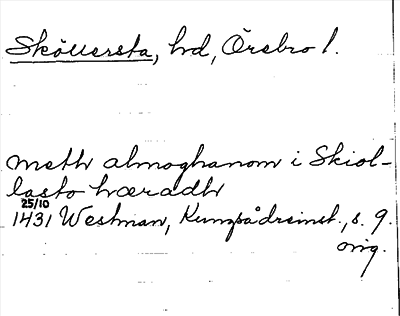 Sköllersta, hd, Örebro l.
meth almoghanom i Skiol-
lasto hæradh
25/10
1431 Westman, Kungsådreinst., s. 9.
orig.